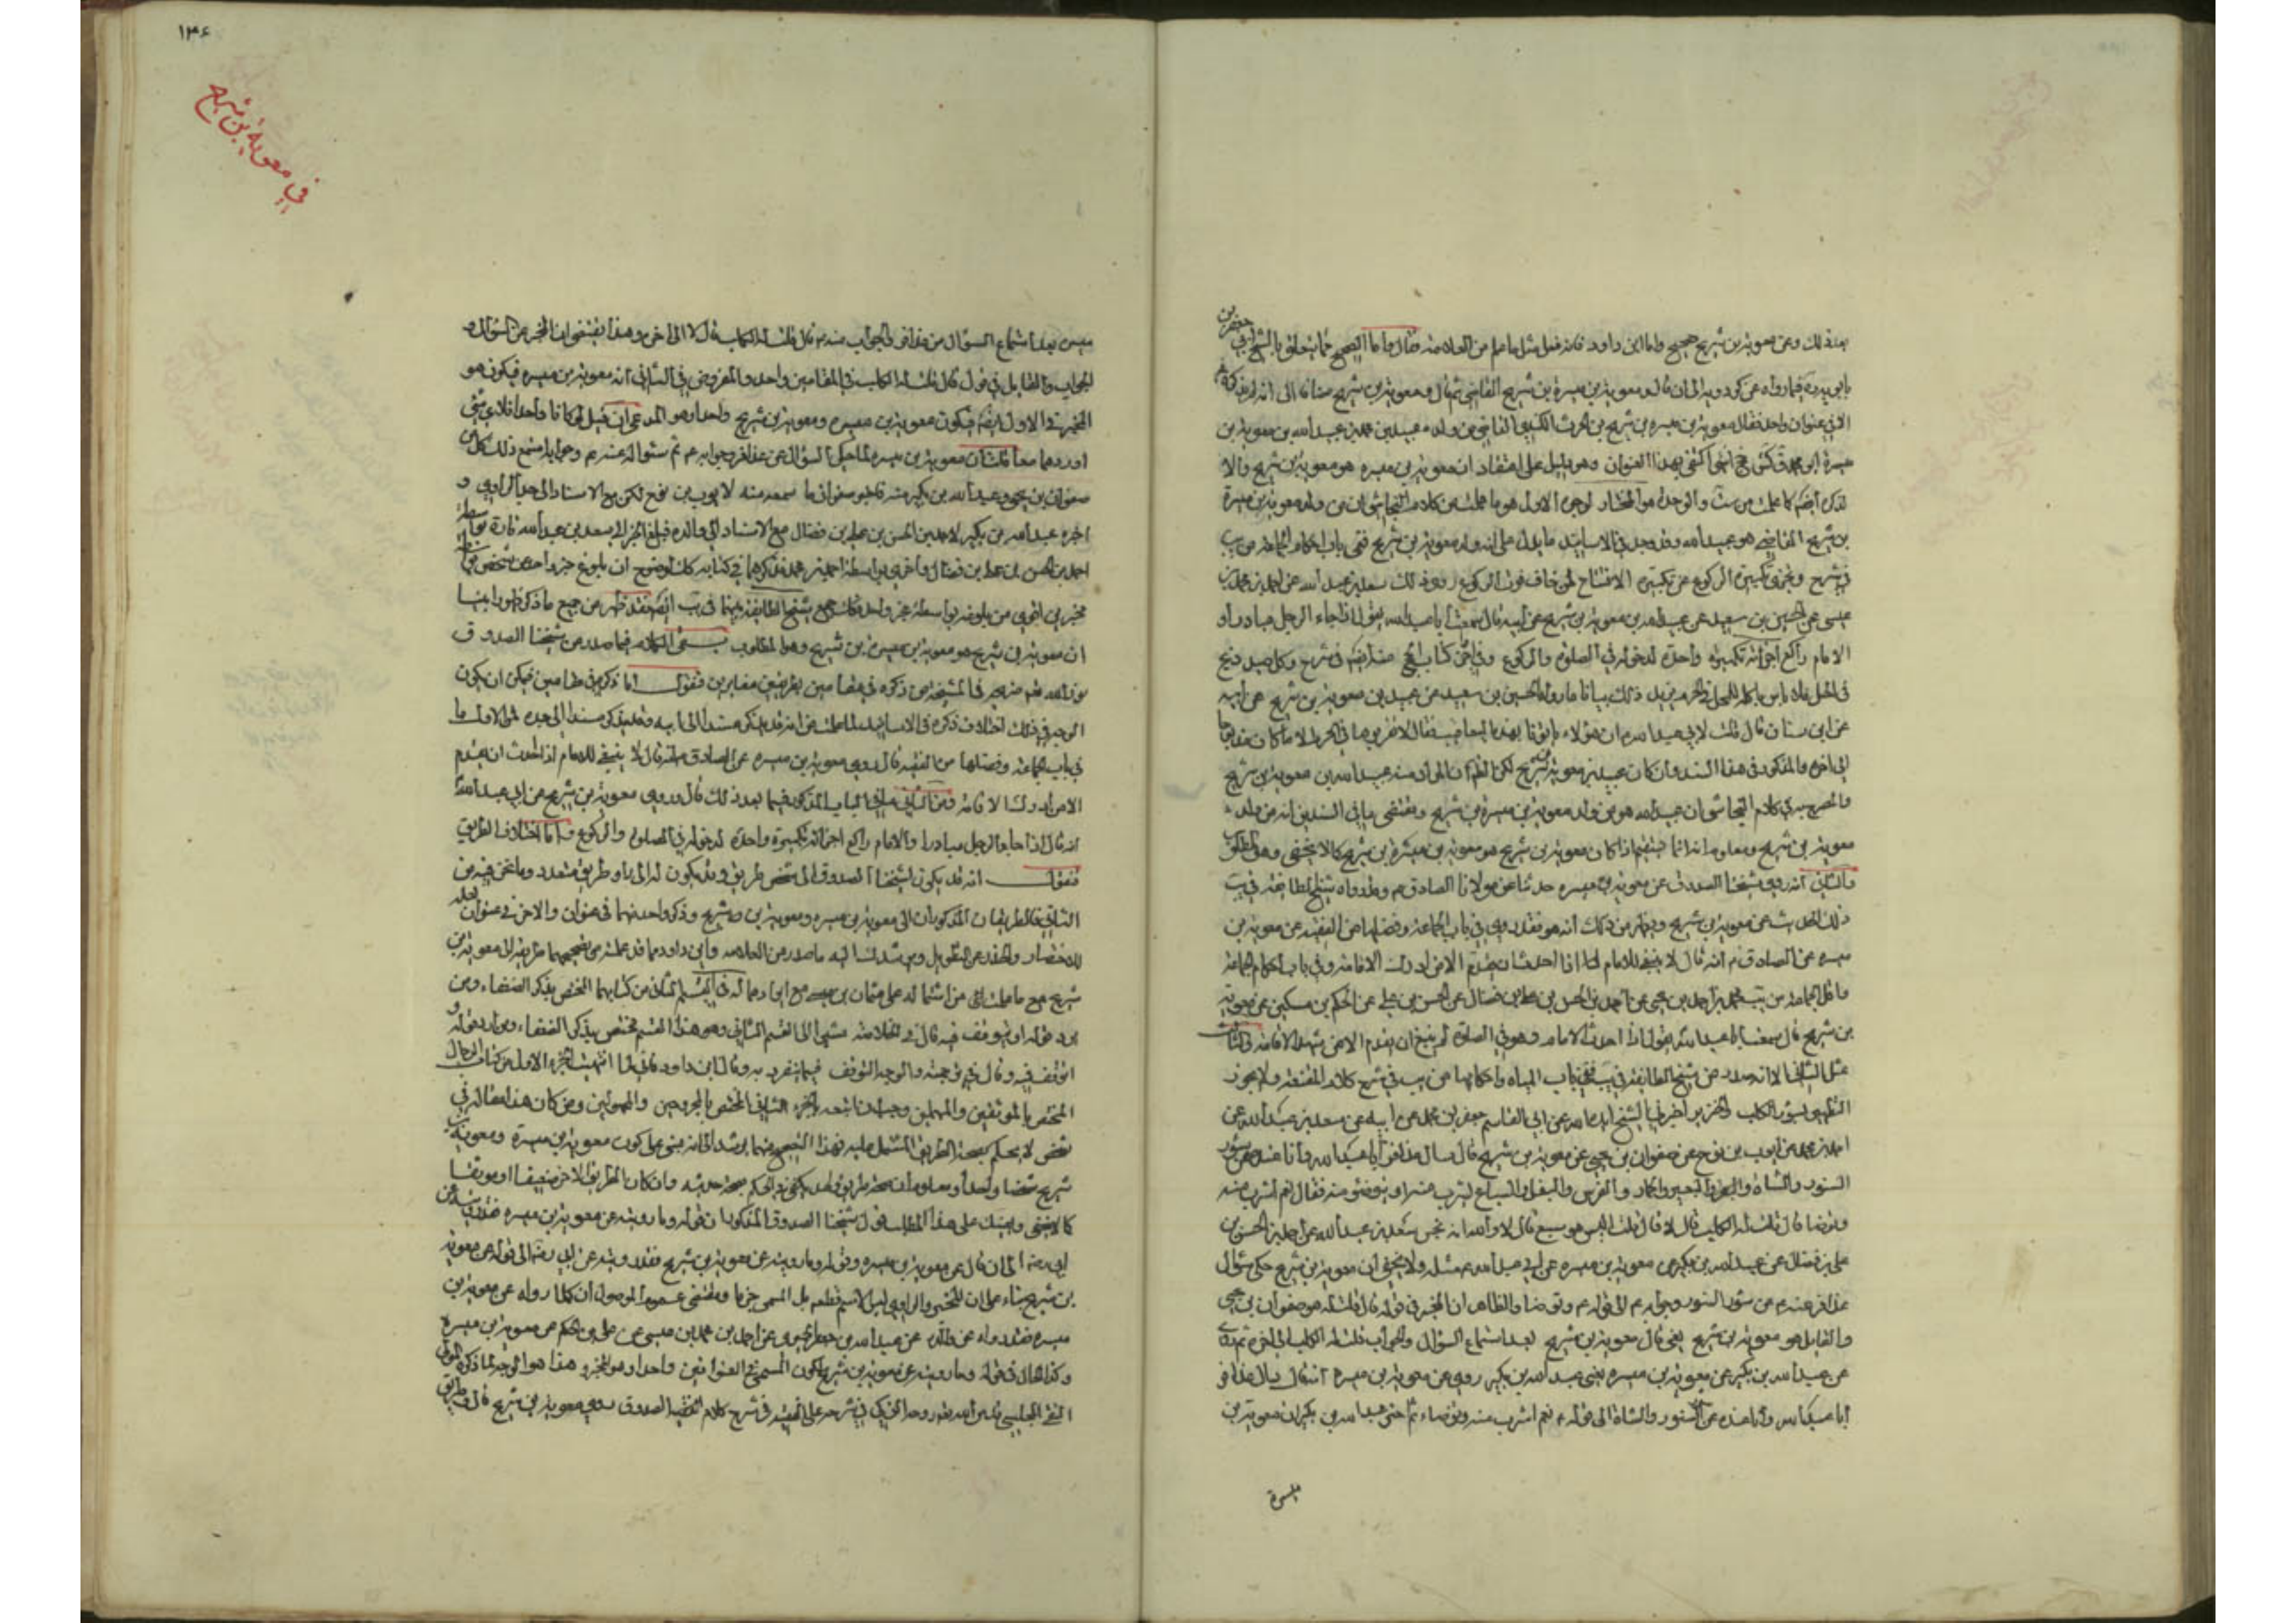 بعد ذلك وعن معوية بن شريح صحيح واما ابن داود فانه فعل مثل ما مر من العلامة فقال واما الصحيح مما يتعلق بالشيخ ابي جعفر بن
بابويه فيما رواه عن كردويه الى ان قال ومعوية بن ميسرة بن شريح القاضي ثم قال ومعوية بن شريح مضافا الى انه لم يذكره
الا في عنوان واحد فقال معوية بن ميسرة بن شريح بن الحرث الكندي القاضي من ولده عبيد بن محمد بن عبيد الله بن معوية بن
ميسرة ابو محمد ق كش جخ انتهى اكتفى بهذا العنوان وهو دليل على اعتقاد ان معوية بن ميسرة هو معوية بن شريح والا
لذكره ايضا كما علمت من ست والوحدة هو المختار لوجوه الاول هو ما علمت من كلام النجاشي ان من ولد معوية بن ميسرة
بن شريح القاضي هو عبيد الله وقد وجد في الاسانيد ما يدل على انه ولد معوية بن شريح ففي باب احكام الجماعة من يب
في شرح ويجزي تكبيرة الركوع عن تكبيرة الافتتاح لمن خاف فوت الركوع روى ذلك سعد بن عبد الله عن احمد بن محمد بن
عيسى عن الحسين بن سعيد عن عبيد الله بن معوية بن شريح عن ابيه قال سمعت ابا عبد الله يقول اذا جاء الرجل مبادرا و
الامام راكع اجزأته تكبيرة واحدة لدخوله في الصلوة والركوع وفي اخر كتاب الحج منه ايضا في شرح وكل صيد ذبح
في الحل فلا باس باكله للمحل في الحرم يزيد ذلك بيانا ما رواه الحسين بن سعيد عن عبيد بن معوية بن شريح عن ابيه
عن ابن سنان قال قلت لابي عبد الله ان هؤلاء ياتونا بهذه اليعاقيب فقال لا تقربوها في الحرم الا ما كان مذبوحا
الى اخره والمذكور في هذا السند وان كان عبيد بن معوية بن شريح لكن الظاهر ان المراد منه عبيد الله بن معوية بن شريح
والمصرح به في كلام النجاشي ان عبيد الله هو من ولد معوية بن ميسرة بن شريح ومقتضى ما في السندين انه من ولد
معوية بن شريح ومعلوم انه انما يستقيم اذا كان معوية بن شريح هو معوية بن ميسرة بن شريح كما لا يخفى وهو المطلوب
والثاني انه روى شيخنا الصدوق عن معوية بن ميسرة حديثا عن مولانا الصادق ع وقد رواه شيخ الطائفة في يب
ذلك الحديث عن معوية بن شريح ويظهر من ذلك انه هو فقد روى في باب الجماعة وفضلها من الفقيه عن معوية بن
ميسرة عن الصادق ع انه قال لا ينبغي للامام اذا احدث ان يقدم الا من ادرك الاقامة وفي باب احكام الجماعة
واقل الجماعة من يب محمد بن احمد بن يحيى عن احمد بن الحسن بن علي بن فضال عن الحسن بن علي عن الحكم بن مسكين عن معوية
بن شريح قال سمعت ابا عبد الله يقول اذا احدث الامام وهو في الصلوة لم ينبغ ان يقدم الا من شهد الاقامة والثالث
مثل الثاني الا انه صدر من شيخ الطائفة في يب ففي باب المياه واحكامها من يب في شرح كلام المقنعة ولا يجوز
التطهير بسؤر الكلب والخنزير اخبرني الشيخ ايده الله عن ابي القاسم جعفر بن محمد عن ابيه عن سعد بن عبد الله عن
احمد بن محمد عن ايوب بن نوح عن صفوان بن يحيى عن معوية بن شريح قال سال عذافر ابا عبد الله وانا عنده عن سؤر
السنور والشاة والبقرة والبعير والحمار والفرس والبغل والسباع يشرب منه او يتوضؤ منه فقال نعم اشرب منه
وتوضا قال قلت له الكلب قال لا قال قلت اليس هو سبع قال لا والله انه نجس سعد بن عبد الله عن احمد بن الحسن بن
علي بن فضال عن عبد الله بن بكير عن معوية بن ميسرة عن ابي عبد الله ع مثله ولا يخفى ان معوية بن شريح حكى سؤال
عذافر عنه ع عن سؤر السنور وجوابه ع الى قوله ع وتوضا والظاهر ان المخبر في قوله قال قلت له هو صفوان بن يحيى
والقايل هو معوية بن شريح يعني قال معوية بن شريح بعد استماع السؤال والجواب قلت له الكلب الى اخره ثم روى
عن عبد الله بن بكير عن معوية بن ميسرة يعني عبد الله بن بكير روى عن معوية بن ميسرة انه قال سال عذافر
ابا عبد الله وانا عنده عن سؤر السنور والشاة الى قوله ع نعم اشرب منه وتوضاء ثم حكى عبد الله بن بكير ان معوية بن
ميسرة
١٣۶
في معوية بن شريح
ميسرة بعد استماع السؤال من عذافر والجواب منه ع قال قلت له الكلب قال لا الى اخره وهذا يقتضي ان المخبر عن السؤال و
الجواب والقايل في قول قال قلت له الكلب في المقامين واحد والمفروض في الثاني انه معوية بن ميسرة فيكون هو
المخبر في الاول ايضا فيكون معوية بن ميسرة ومعوية بن شريح واحدا وهو المدعى ان قيل لو كانا واحدا فلاي شيء
اوردهما معا قلت ان معوية بن ميسرة لما حكى السؤال عن عذافر وجوابه ع ثم سئواله عنه ع وجوابه استمع ذلك كل من
صفوان بن يحيى وعبد الله بن بكير منه فاخبر صفوان ما سمعه منه لايوب بن نوح لكن مع الاسناد الى جد الراوي و
اخبره عبد الله بن بكير لاحمد بن الحسن بن علي بن فضال مع الاسناد الى والده فبلغ الخبر الى سعد بن عبد الله تارة بواسطة
احمد بن الحسن بن علي بن فضال واخرى بواسطة احمد بن محمد فذكرهما في كتابه كما ان لوضوح ان بلوغ خبر واحد من شخص بواسطة
مخبرين اقوى من بلوغه بواسطة مخبر واحد فلذا جمع شيخ الطائفة بينهما في يب ايضا فقد ظهر من جميع ما ذكر ظهورا بينا
ان معوية بن شريح هو معوية بن ميسرة بن شريح وهو المطلوب بقى الكلام فيما صدر من شيخنا الصدوق
نور الله ضريحه في المشيخة من ذكره في مقامين بطريقين مغايرين فنقول اما ذكره في مقامين فيمكن ان يكون
الوجه في ذلك اختلاف ذكره في الاسانيد لما علمت من انه قد يذكر مسندا الى ابيه وقد يذكر مسندا الى جده فمن الاول ما
في باب الجماعة وفضلها من الفقيه قال روى معوية بن ميسرة عن الصادق ع انه قال لا ينبغي للامام اذا احدث ان يقدم
الا من ادرك الاقامة ومن الثاني ما في الباب المذكور فيما بعد ذلك قال وروى معوية بن شريح عن ابي عبد الله
انه قال اذا جاء الرجل مبادرا والامام راكع اجزأته تكبيرة واحدة لدخوله في الصلوة والركوع واما اختلاف الطريق
فنقول انه قد يكون لشيخنا الصدوق الى شخص طريق وقد يكون له اليه طريق متعدد وما نحن فيه من
الثاني فالطريقان المذكوران الى معوية بن ميسرة ومعوية بن شريح وذكر واحد منهما في عنوان والاخر في عنوان لعله
للاختصار والحذر عن التطويل ومن يشدك اليه ما صدر من العلامة وابن داود مما قد علمت من تصحيحهما طريقه الى معوية بن
شريح مع ما علمت من اشتماله على عثمان بن عيسى مع ايرادهما له في القسم الثاني من كتابهما المختص بذكر الضعفاء ومن
يرد قوله او يتوقف فيه قال في الخلاصة مشيرا الى القسم الثاني وهو هذا القسم مختص بذكر الضعفاء ومن ارد قوله او
اتوقف فيه وقال في ترجمته والوجه التوقف فيما ينفرد به وقال ابن داود فاني لما انهيت الجزء الاول من كتاب الرجال
المختص بالموثقين والمهملين وجب ان اتبعه بالجزء الثاني المختص بالمجروحين والمجهولين ومن كان هذا مقاله في
شخص لا يحكم بصحة الطريق المشتمل عليه فهذا التصحيح منهما يرشد الى انه مبني على كون معوية بن ميسرة ومعوية بن
شريح شخصا واحدا ومعلوم ان صحة طريق واحد يكفي في الحكم بصحة حديثه وان كان الطريق الاخر ضعيفا او موثقا
كما لا يخفى وينبهك على هذا المطلب قول شيخنا الصدوق المذكور ان قوله وما رويته عن معوية بن ميسرة فقد رويته عن
ابي رضه الى ان قال عن معوية بن ميسرة وقوله وما رويته عن معوية بن شريح فقد رويته عن ابي رضه الى قوله عن معوية
بن شريح بناء على ان المخبر والراوي ليس الاسم قطعا بل المسمى جزما ومقتضى عموم الموصول ان كلما رواه عن معوية بن
ميسرة فقد رواه عن والده عن عبد الله بن جعفر الحميري عن احمد بن محمد بن عيسى عن علي بن الحكم عن معوية بن ميسرة
وكذا الحال في قوله وما رويته عن معوية بن شريح لكون المسمى في العنوانين واحدا وهو المخبر هذا هو الوجه لما ذكره المولى
التقي المجلسي قدس الله تعالى روحه الزكي في شرحه على الفقيه في شرح كلام شيخنا الصدوق روى معوية بن شريح قال في طريق